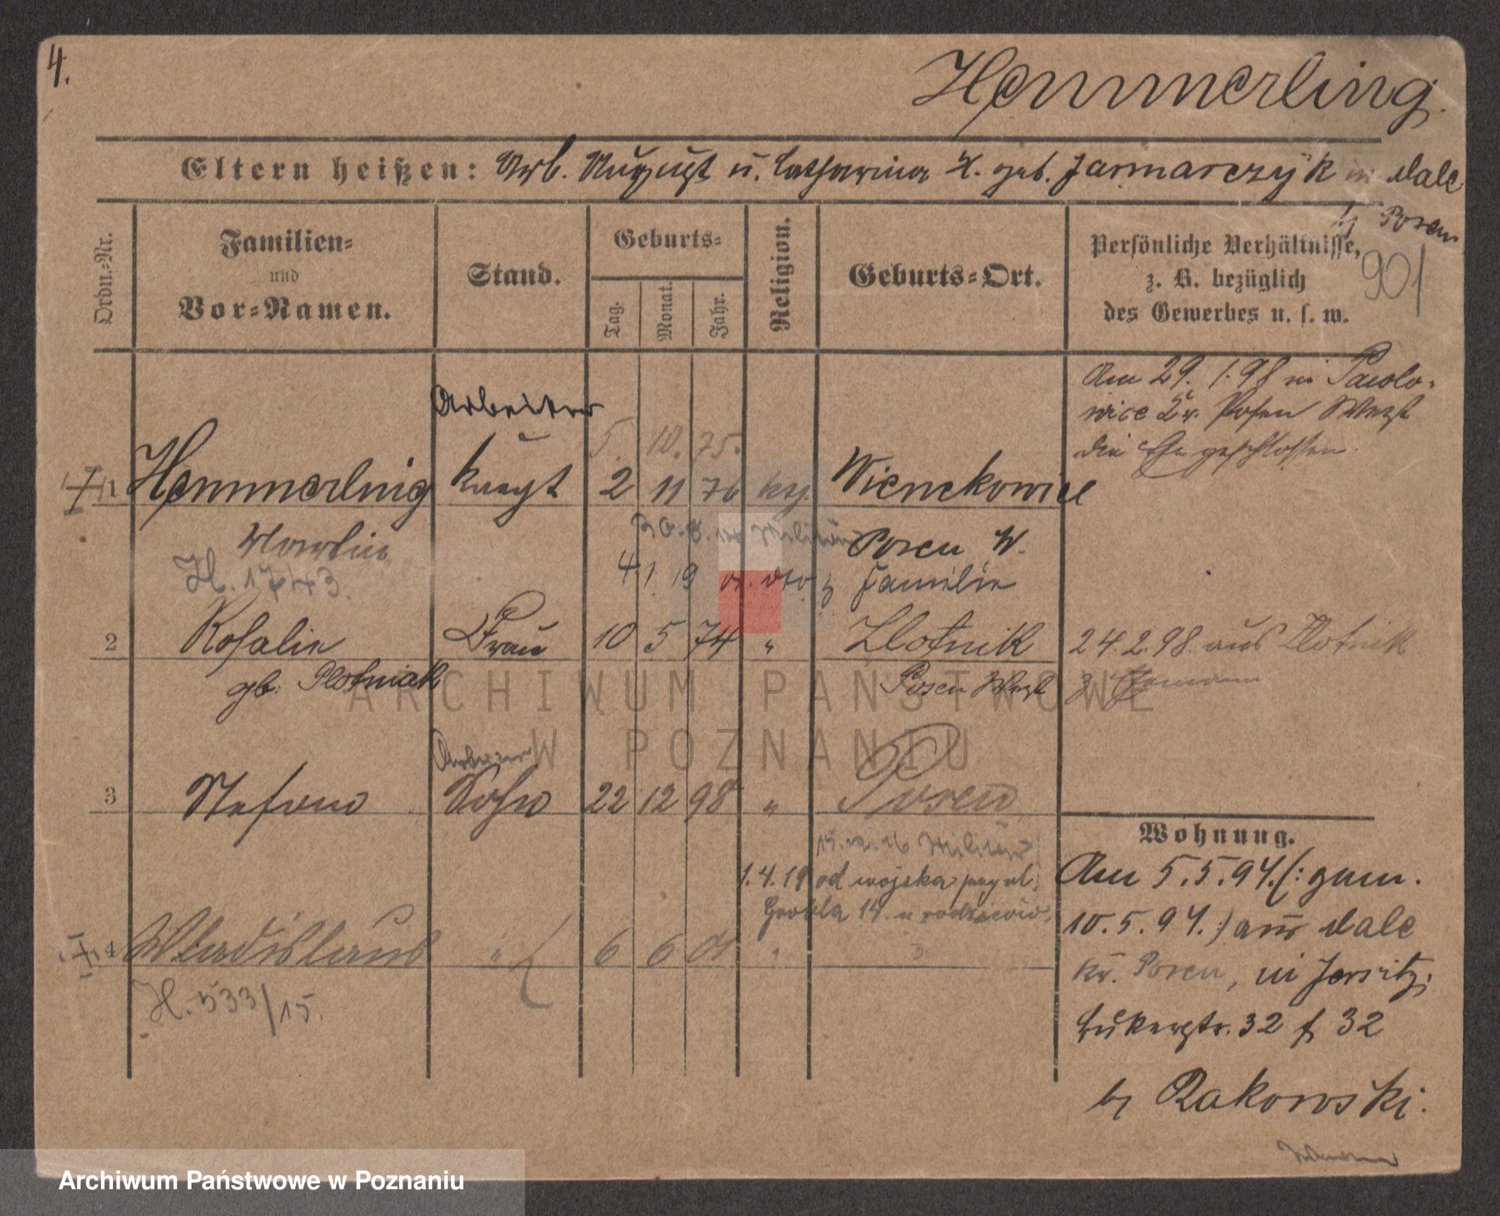 4.
Hemmerling.
Eltern heißen: Arb. August u. Catharina H. geb. Jarmarczyk in Dale
bj Posen
901
Ordn.-Nr.
Familien-
und
Vor-Namen.
Stand.
Geburts-
Tag.
Monat.
Jahr.
Religion.
Geburts-Ort.
Persönliche Verhältnisse,
z. B. bezüglich
des Gewerbes u. s. w.
Am 29. 1. 98 in
Kr. Posen West
die Ehe geschlossen.
Arbeiter
5. 10. 75.
1 Hemmerling Knegt 2 11 76
Martin
H. 1743.
Militär
Posen W.
4 1 19
Familie
2 Rosalie Frau 10 5 74 " Zlotnik
24.2.98. aus Zlotnik
gb. Plotniak
Posen West
z. Ehemann
Arbeiter
3 Stefan Sohn 22 12 98 " Posen
Wohnung.
Militär
1.4.19 od wojska
14. u rodziców.
Am 5.5.94. (: gem.
10.5.94. :) aus Dale
Kr. Posen, in Jersitz,
4 Wladislaus " 6 6 01 "
H. 533/15.
32 f 32
bj Rakowski.
ARCHIWUM PAŃSTWOWE
W POZNANIU
Archiwum Państwowe w Poznaniu